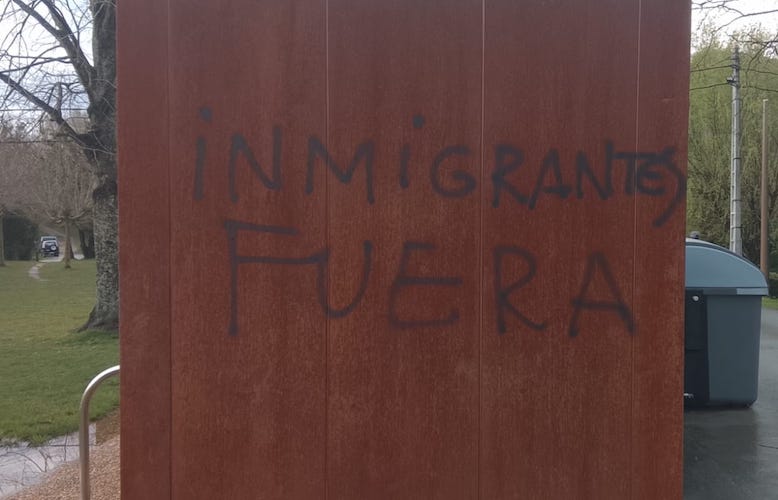 INMIGRANTES
FUERA